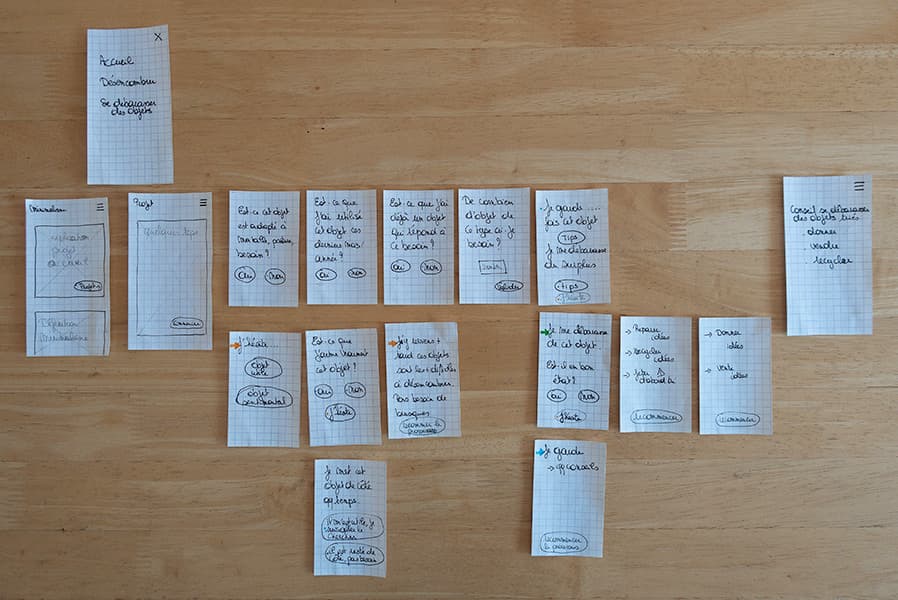 X
Accueil
Désencombrer
Se débarrasser
des objets
Minimalisme
Explication
projet
accueil
Projet
Définition
Minimalisme
Projet
quelques tips
Commencer
Est-ce cet objet
est adapté à
mon
besoin ?
Oui Non
Est-ce que
j'ai utilisé
cet objet ces
derniers mois/
année ?
Oui Non
Est-ce que j'ai
déjà un objet
qui répond à
ce besoin ?
Oui Non
De combien
d'objet de
ce type ai-je
besoin ?
Valider
Je garde ....
pas cet objet
Tips
Je me débarrasse
du surplus
tips
J'hésite
Conseil se débarrasser
des objets triés
- donner
- vendre
- recycler
J'hésite...
objet
utile
objet
sentimental
Est-ce que
j'aurme
cet objet ?
Oui Non
J'hésite
J'y reviens +
tard ces objets
sont les + difficiles
à désencombrer.
Pas besoin de
brusques
recommencer le
processus
Je me débarrasse
de cet objet
Est-il en bon
état ?
Oui Non
J'hésite
→ Réparer
idées
→ Recycler
idées
→ Jeter
recommencer
→ Donner
idées
→ Vendre
idées
recommencer
Je met cet
objet de côté
qq temps.
je
chercher
il est resté de
côté, pas besoin
Je garde
→ qq conseils
recommencer
le processus